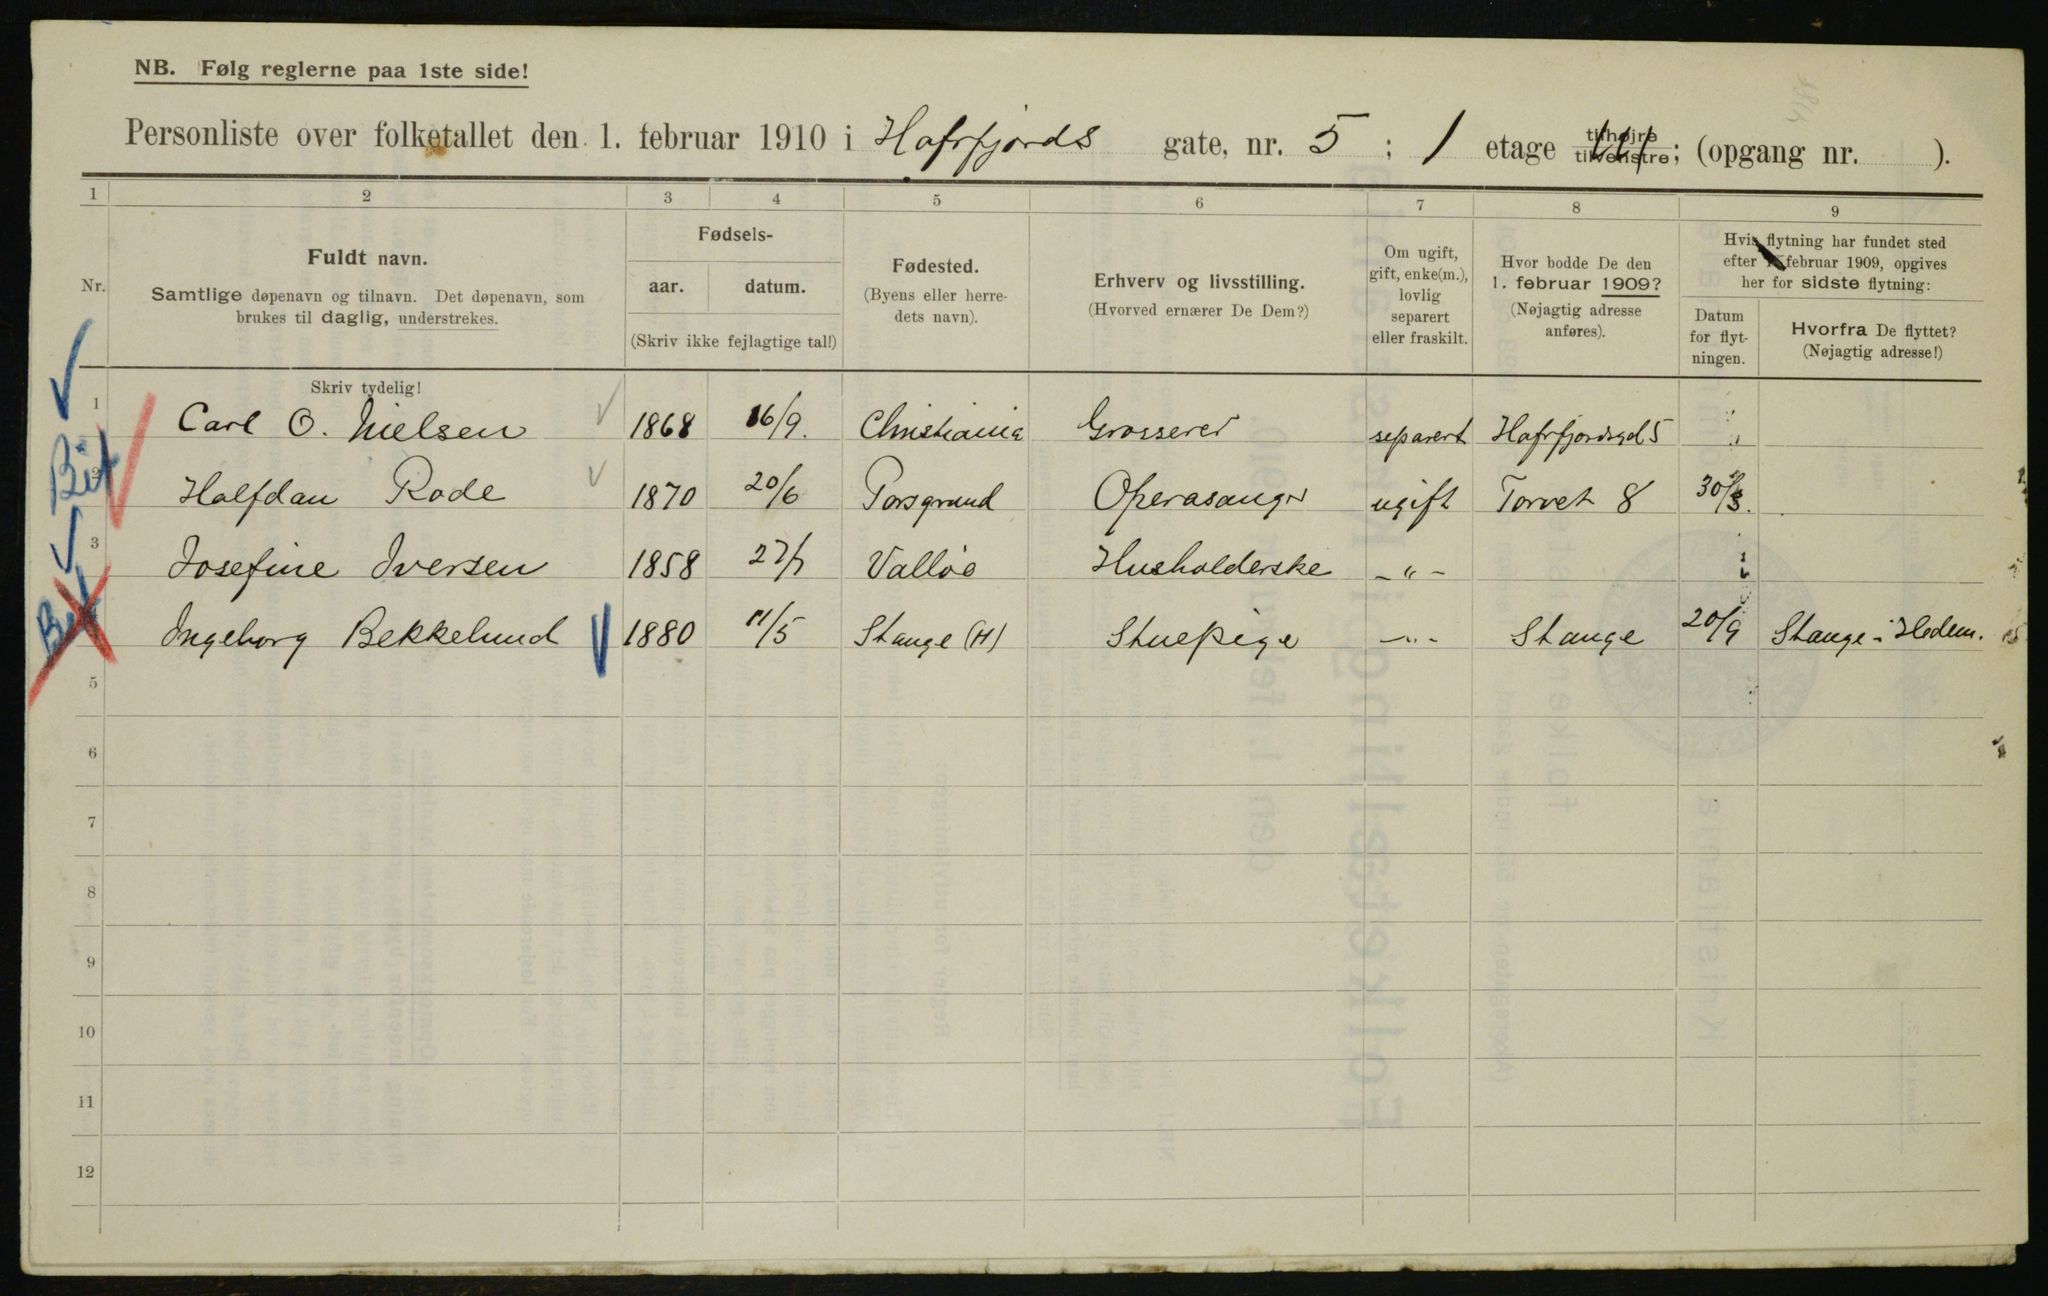 NB. Følg reglerne paa 1ste side!
Personliste over folketallet den 1. februar 1910 i Hafrfjords gate, nr. 5 ; 1 etage tilhøjre tilvenstre; (opgang nr. ).
1 2 3 4 5 6 7 8 9
Nr.
Fuldt navn.
Samtlige døpenavn og tilnavn. Det døpenavn, som
brukes til daglig, understrekes.
Skriv tydelig!
Fødsels-
aar. datum.
(Skriv ikke fejlagtige tal!)
Fødested.
(Byens eller herre-
dets navn).
Erhverv og livsstilling.
(Hvorved ernærer De Dem?)
Om ugift,
gift, enke(m.),
lovlig
separert
eller fraskilt.
Hvor bodde De den
1. februar 1909?
(Nøjagtig adresse
anføres).
Hvis flytning har fundet sted
efter februar 1909, opgives
her for sidste flytning:
Datum
for flyt-
ningen.
Hvorfra De flyttet?
(Nøjagtig adresse!)
1 Carl O. Nielsen 1868 16/9. Christiania Grosserer separert Hafrfjordsgd 5 "
2 Halfdan Rode 1870 20/6 Porsgrund Operasanger ugift Torvet 8 30/3.
3 Josefine Iversen 1858 27/7 Valløe Husholderske -"-
Ingeborg Bekkelund 1880 11/5 Stange (H) Stuepige -"- Stange 20/9 Stange i Hedem.
5
6
7
8
9
10
11
12